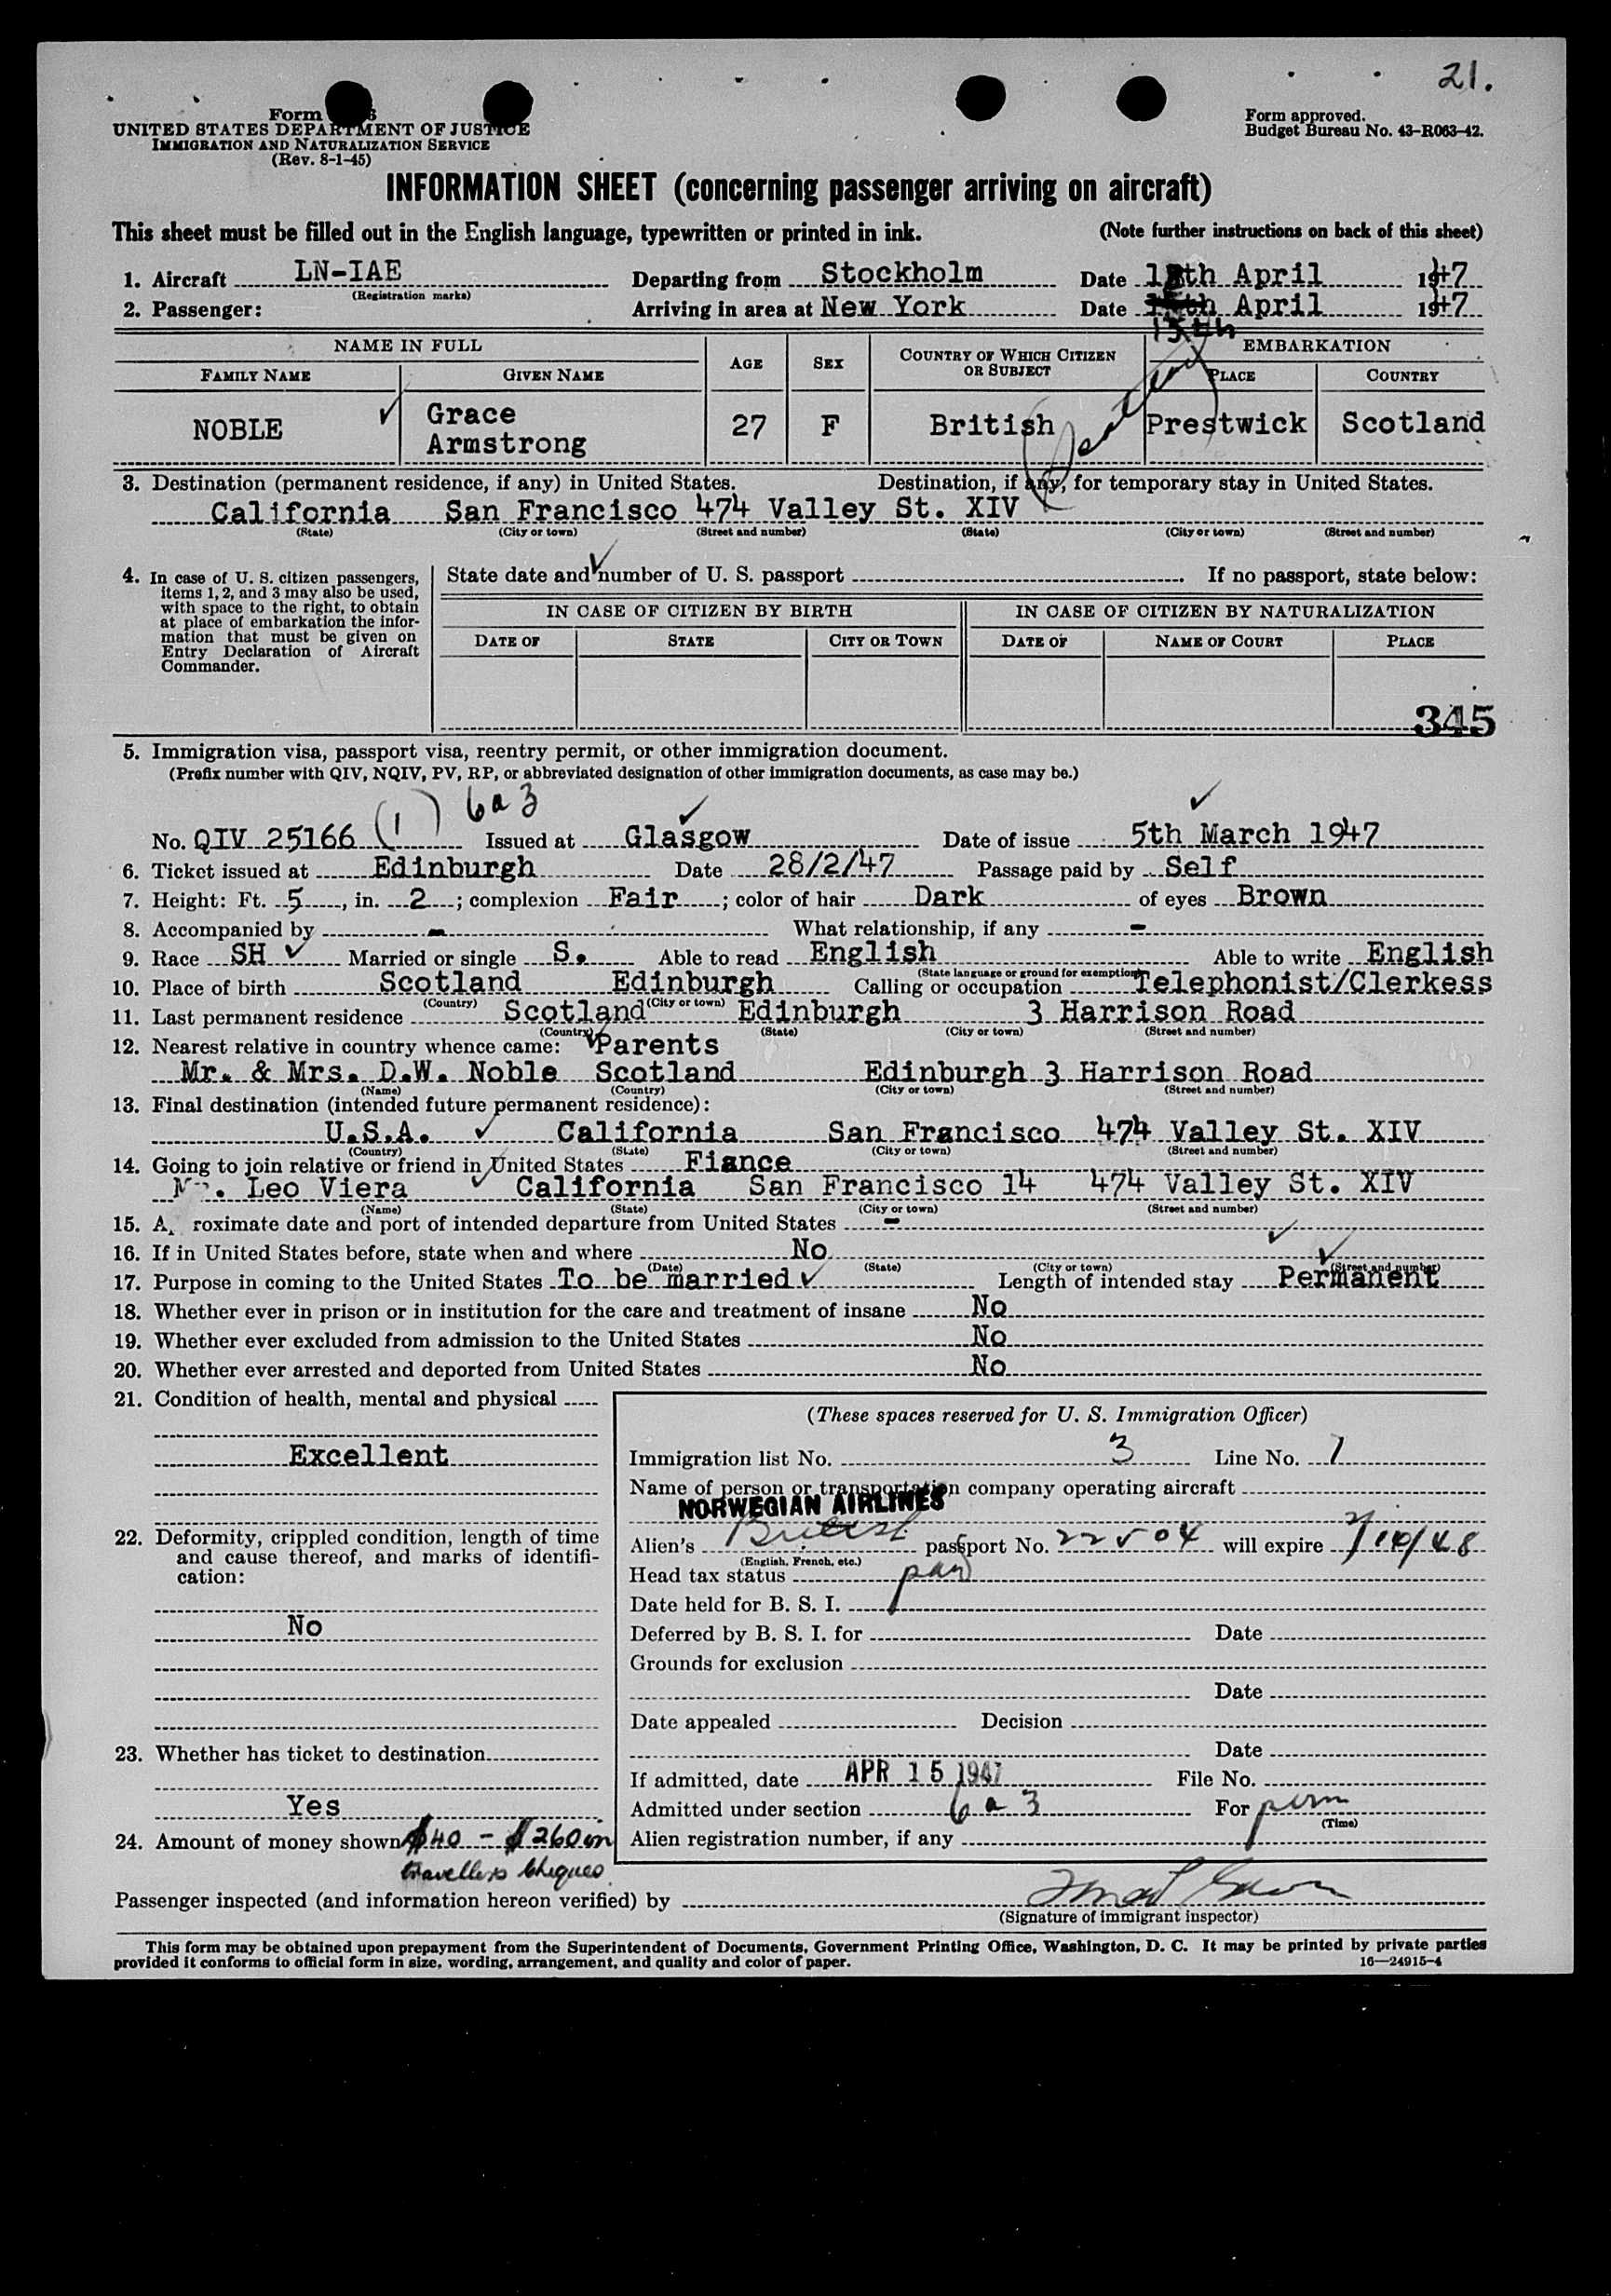 21.
Form
UNITED STATES DEPARTMENT OF JUSTICE
IMMIGRATION AND NATURALIZATION SERVICE
(Rev. 8-1-45)
Form approved.
Budget Bureau No. 43-R063-42.
INFORMATION SHEET (concerning passenger arriving on aircraft)
This sheet must be filled out in the English language, typewritten or printed in ink. (Note further instructions on back of this sheet)
1. Aircraft LN-IAE Departing from Stockholm Date April 1947
(Registration marks)
2. Passenger: Arriving in area at New York Date April 1947
15th
NAME IN FULL AGE SEX COUNTRY OF WHICH CITIZEN OR SUBJECT EMBARKATION
FAMILY NAME GIVEN NAME PLACE COUNTRY
NOBLE Grace Armstrong 27 F British Prestwick Scotland
3. Destination (permanent residence, if any) in United States. Destination, if any, for temporary stay in United States.
California San Francisco 474 Valley St. XIV
(State) (City or town) (Street and number) (State) (City or town) (Street and number)
4. In case of U. S. citizen passengers, items 1, 2, and 3 may also be used, with space to the right, to obtain at place of embarkation the information that must be given on Entry Declaration of Aircraft Commander.
State date and number of U. S. passport . If no passport, state below:
IN CASE OF CITIZEN BY BIRTH IN CASE OF CITIZEN BY NATURALIZATION
DATE OF STATE CITY OR TOWN DATE OF NAME OF COURT PLACE
345
5. Immigration visa, passport visa, reentry permit, or other immigration document.
(Prefix number with QIV, NQIV, PV, RP, or abbreviated designation of other immigration documents, as case may be.)
6 a 3
No. QIV 25166 (1) Issued at Glasgow Date of issue 5th March 1947
6. Ticket issued at Edinburgh Date 28/2/47 Passage paid by Self
7. Height: Ft. 5, in. 2; complexion Fair; color of hair Dark of eyes Brown
8. Accompanied by - What relationship, if any -
9. Race SH Married or single S. Able to read English Able to write English
(State language or ground for exemption)
10. Place of birth Scotland Edinburgh Calling or occupation Telephonist/Clerkess
(Country) (City or town)
11. Last permanent residence Scotland Edinburgh 3 Harrison Road
(Country) (State) (City or town) (Street and number)
12. Nearest relative in country whence came: Parents
Mr. & Mrs. D.W. Noble Scotland Edinburgh 3 Harrison Road
(Name) (Country) (City or town) (Street and number)
13. Final destination (intended future permanent residence):
U.S.A. California San Francisco 474 Valley St. XIV
(Country) (State) (City or town) (Street and number)
14. Going to join relative or friend in United States Fiance
Leo Viera California San Francisco 14 474 Valley St. XIV
(Name) (State) (City or town) (Street and number)
15. A roximate date and port of intended departure from United States -
16. If in United States before, state when and where No
(Date) (State) (City or town) (Street and number)
17. Purpose in coming to the United States To be married Length of intended stay Permanent
18. Whether ever in prison or in institution for the care and treatment of insane No
19. Whether ever excluded from admission to the United States No
20. Whether ever arrested and deported from United States No
21. Condition of health, mental and physical
Excellent
22. Deformity, crippled condition, length of time and cause thereof, and marks of identification:
No
23. Whether has ticket to destination
Yes
24. Amount of money shown $40 - $260 in
travellers cheques
(These spaces reserved for U. S. Immigration Officer)
Immigration list No. 3 Line No. 1
Name of person or transportation company operating aircraft
NORWEGIAN AIRLINES
Alien's British passport No. 22504 will expire
(English, French, etc.)
Head tax status paid
Date held for B. S. I.
Deferred by B. S. I. for Date
Grounds for exclusion
Date
Date appealed Decision
Date
If admitted, date APR 15 1947 File No.
Admitted under section 6 a 3 For perm
(Time)
Alien registration number, if any
Passenger inspected (and information hereon verified) by
(Signature of immigrant inspector)
This form may be obtained upon prepayment from the Superintendent of Documents, Government Printing Office, Washington, D. C. It may be printed by private parties
provided it conforms to official form in size, wording, arrangement, and quality and color of paper. 16—24915-4